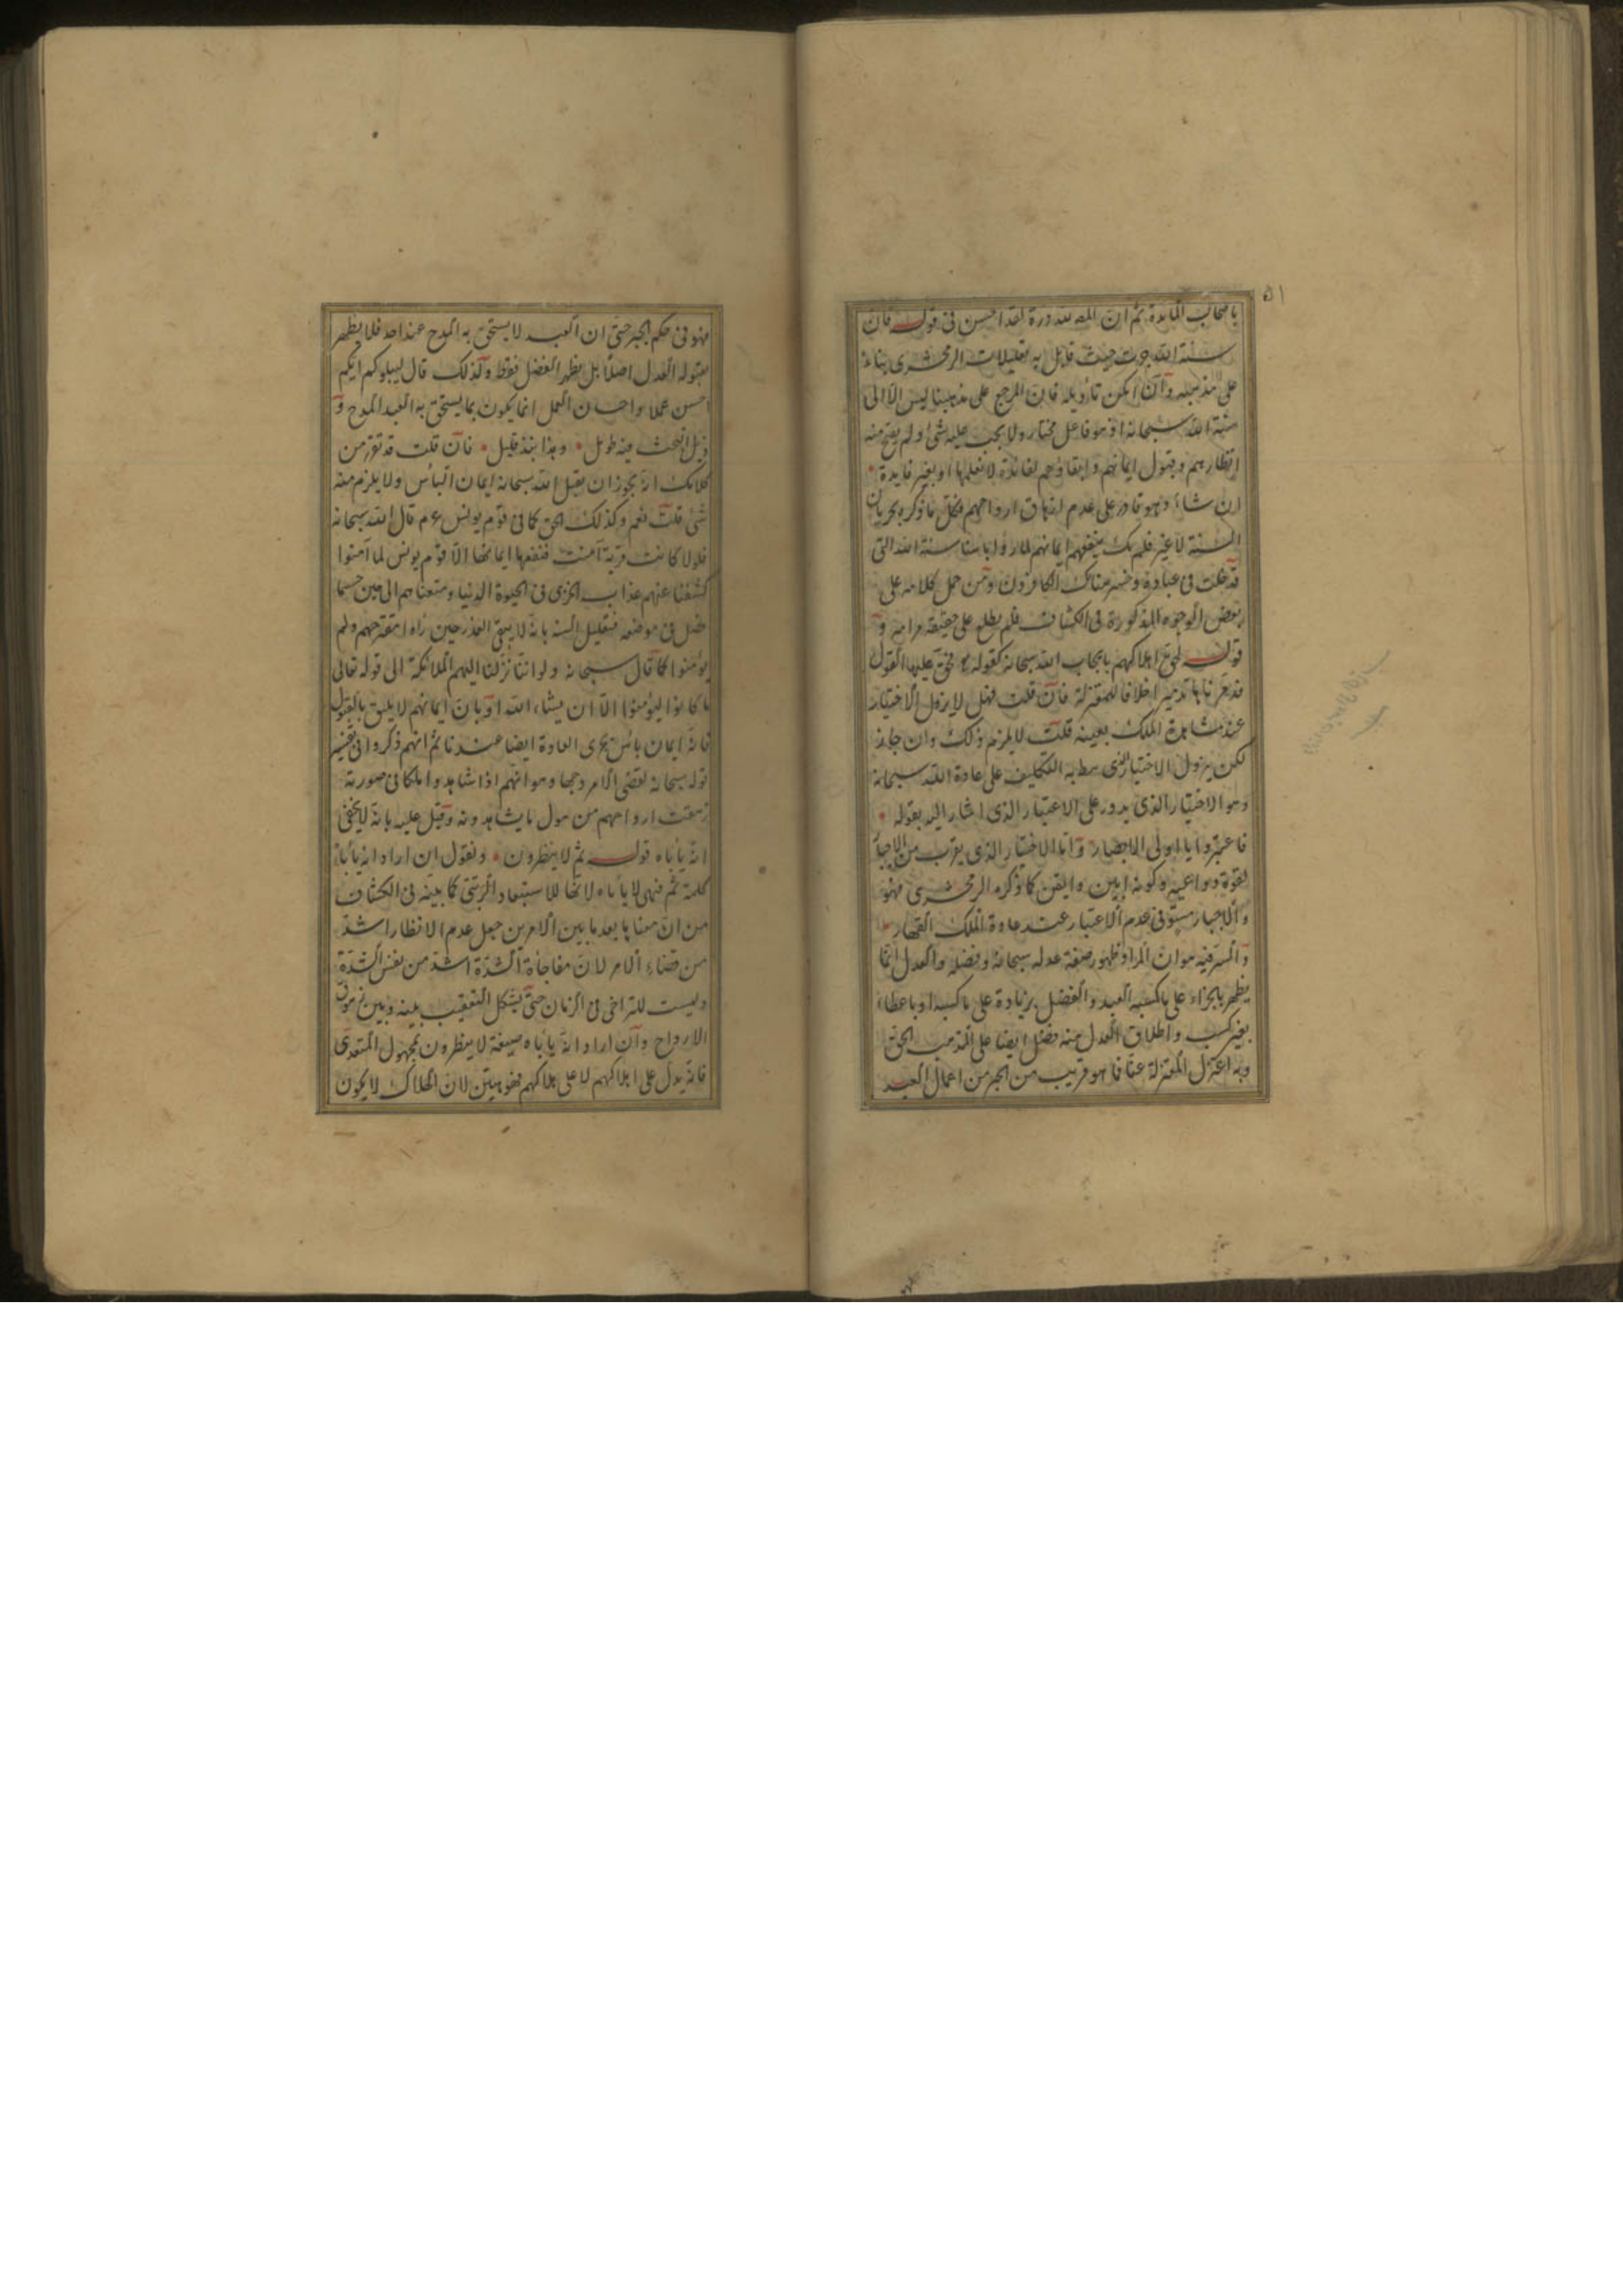 ٥١
باصحاب المائدة ثم ان المص لله دره لقد احسن فى قوله فان
سنة الله جرت حيث قابل به تعليلات الزمخشرى بناء
على مذهبه وان امكن تأويله فان المرجع على مذهبنا ليس الا الى
سنة الله سبحانه اذ هو فاعل مختار ولا يجب عليه شئ ولم يقبح منه
انظارهم وقبول ايمانهم وابقاؤهم لفائدة لا نعلمها او بغير فايدة
ان شاء وهو قادر على عدم ازهاق ارواحهم فكل ما ذكره بجريان
السنة لا غير فلم يك ينفعهم ايمانهم لما رأوا باسنا سنة الله التى
قد خلت فى عباده وخسر هنالك الكافرون ومن حمل كلامه على
بعض الوجوه المذكورة فى الكشاف فلم يطلع على حقيقة مرامه و
قوله لحق اهلاكهم بايجاب الله سبحانه كقوله فحق عليها القول
فدمرناها تدميرا خلافا للمعتزلة فان قلت فهل لا يزول الاختيار
عند مشاهدة الملك بعينه قلت لا يلزم ذلك وان جاز
لكن يزول الاختيار الذى يربط به التكليف على عادة الله سبحانه
وهو الاختيار الذى يدور على الاعتبار الذى اشار اليه بقوله
فاعتبروا يا اولى الابصار واما الاختيار الذى يقرب من الاجبار
لقوة دواعيه وكونه ابين وايقن كما ذكره الزمخشرى فهو
والاجبار مستو فى عدم الاعتبار عند عادة الملك القهار
والسر فيه هو ان المراد ظهور صفة عدله سبحانه وفضله والعدل انما
يظهر بالجزاء على ما كسبه العبد والفضل بزيادة على ما كسبه او باعطاء
بغير كسب واطلاق العدل منه فضل ايضا على المذهب الحق
وبه اعتزل المعتزلة عنا فما هو قريب من الجبر من اعمال العبد
فهو فى حكم الجبر حتى ان العبد لا يستحق به المدح عند احد فلا يظهر
بقبوله العدل اصلا بل يظهر الفضل فقط ولذلك قال ليبلوكم ايكم
احسن عملا واحسان العمل انما يكون بما يستحق به العبد المدح و
ذيل البحث فيه طويل وهذا نبذ قليل فان قلت قد تقرر من
كلامك انه يجوز ان يقبل الله سبحانه ايمان البأس ولا يلزم منه
شئ قلت نعم وكذلك الحق كما فى قوم يونس ع م قال الله سبحانه
فلولا كانت قرية آمنت فنفعها ايمانها الا قوم يونس لما آمنوا
كشفنا عنهم عذاب الخزى فى الحيوة الدنيا ومتعناهم الى حين حسبما
فصل فى موضعه فتعليل السنة بانه لا يبقى العذر حين زاد مقترحهم ولم
يؤمنوا كما قال سبحانه ولو اننا نزلنا اليهم الملائكة الى قوله تعالى
ما كانوا ليؤمنوا الا ان يشاء الله او بان ايمانهم لا يليق بالقبول
فانه ايمان بائس بجرى العادة ايضا عندنا ثم انهم ذكروا فى تفسير
قوله سبحانه لقضى الامر وجها وهو انهم اذا شاهدوا ملكا فى صورته
زهقت ارواحهم من هول ما يشاهدونه وقيل عليه بانه لا يخفى
انه يأباه قوله ثم لا ينظرون ونقول ان اراد انه يأباه
كلمة ثم فهى لا يأباه لانها للاستبعاد الرتبى كما بينه فى الكشاف
من ان معناها بعد ما بين الامرين جعل عدم الانظار اشد
من قضاء الامر لان مفاجأة الشدة اشد من نفس الشدة
وليست للتراخى فى الزمان حتى يشكل التعقيب بينه وبين زهوق
الارواح وان اراد انه يأباه صيغة لا ينظرون بمجهول المتعدى
فانه يدل على اهلاكهم لا على هلاكهم فهو هين لان الهلاك لا يكون